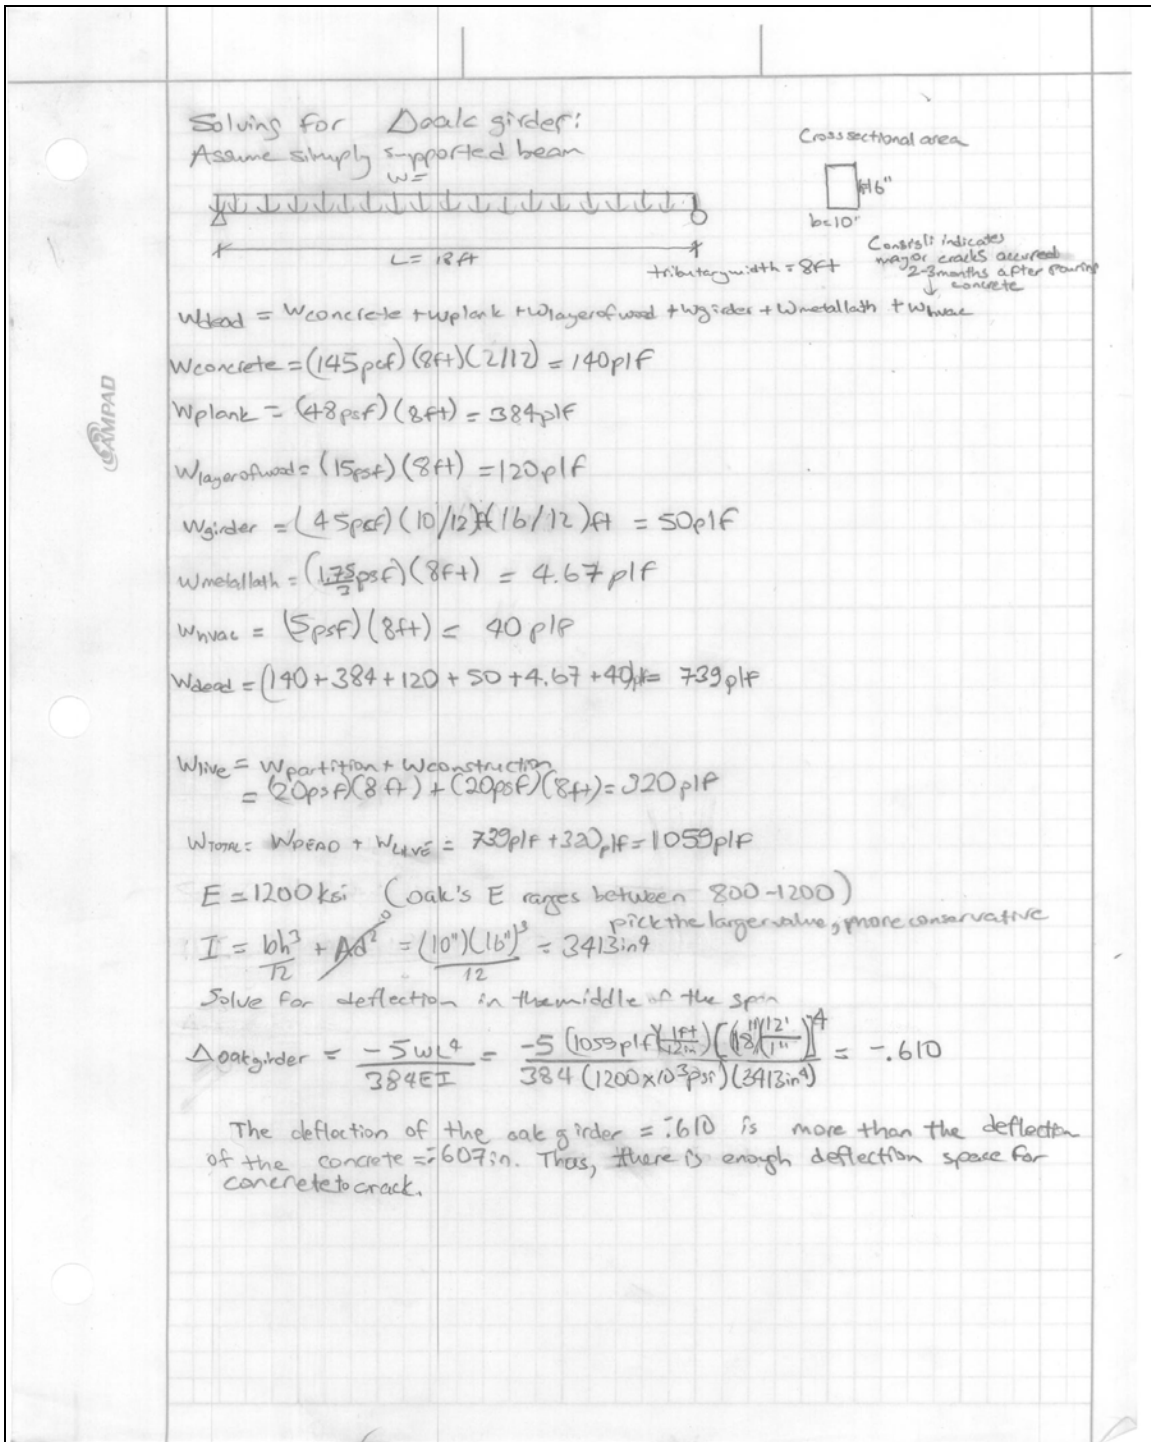 Solving for Δoak girder:
Assume simply supported beam
w=
L= 18ft
Cross sectional area
h=16"
b=10"
tributary width = 8ft
Consigli indicates
major cracks accured
2-3 months after pouring
↓ concrete
Wdead = Wconcrete + Wplank + Wlayerofwood + Wgirder + Wmetallath + Whvac
Wconcrete = (145pcf)(8ft)(2/12) = 140plf
Wplank = (48psf)(8ft) = 384plf
Wlayerofwood = (15psf)(8ft) = 120plf
Wgirder = (45pcf)(10/12)ft(16/12)ft = 50plf
Wmetallath = (1.75/3 psf)(8ft) = 4.67 plf
Whvac = (5psf)(8ft) = 40 plf
Wdead = (140 + 384 + 120 + 50 + 4.67 + 40)plf = 739plf
Wlive = Wpartition + Wconstruction
= (20psf)(8 ft) + (20psf)(8ft) = 320plf
WTOTAL = WDEAD + WLIVE = 739plf + 320plf = 1059plf
E = 1200ksi (oak's E ranges between 800-1200)
pick the larger value, more conservative
I = bh³/12 + Ad² 0 = (10")(16")³/12 = 3413in4
Solve for deflection in the middle of the span
Δoakgirder = -5wL⁴/384EI = -5 (1059plf)(1ft/12in)[(18")(12'/1")]⁴/384(1200x10³psi)(3413in⁴) = -.610
The deflection of the oak girder = -.610 is more than the deflection
of the concrete = -.607in. Thus, there is enough deflection space for
concrete to crack.
AMPAD